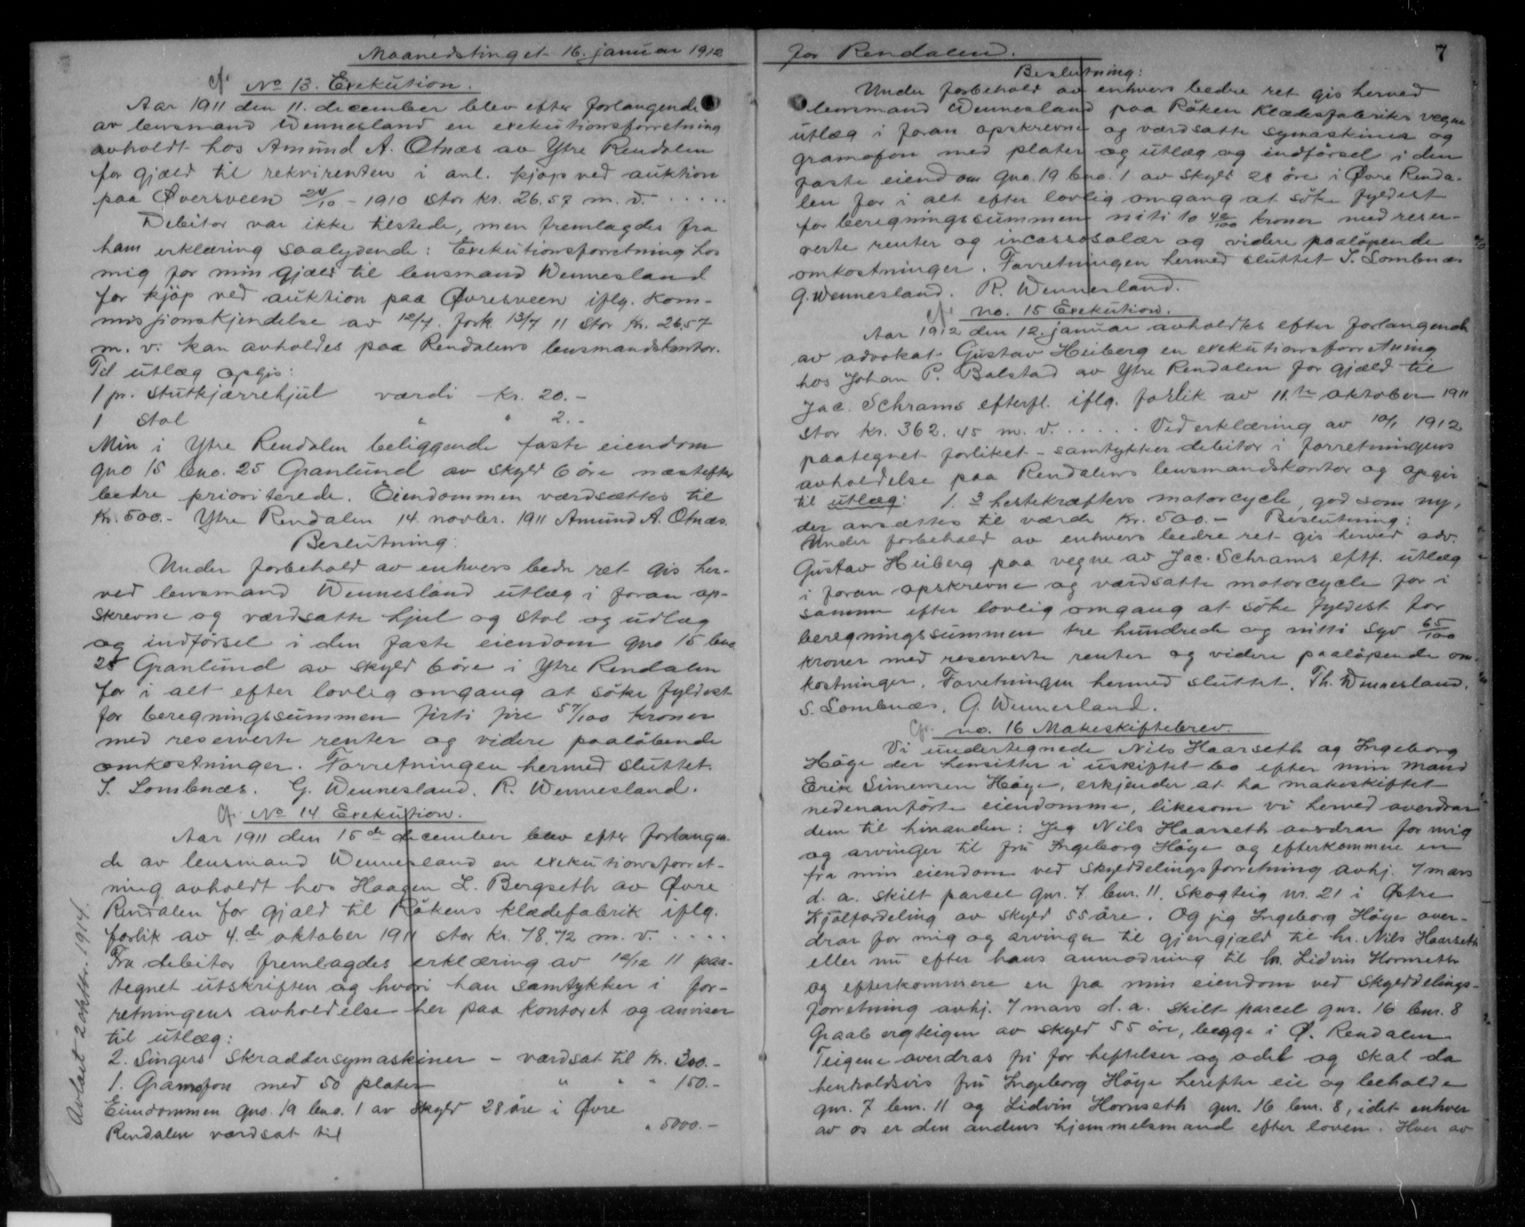 Maanedstinget 16. januar 1912
cf. No 13. Exekution.
Aar 1911 den 11. december blev efter forlangende
av lensmand Wennesland en exekutionsforretning
avholdt hos Amund A. Otnæs av Ytre Rendalen
for gjæld til rekvirenten i anl. kjøp ved auktion
paa Øversveen 24/10 - 1910 stor kr. 26.57 m. v. . . . .
Debitor var ikke tilstede, men fremlagdes fra
ham erklæring saalydende: Exekutionsforretning hos
mig for min gjæld til lensmand Wennesland
for kjöp ved auktion paa Øvresveen iflg. kom-
missjonskjendelse av 12/7. fork 13/7 11 stor kr. 26.57
m. v. kan avholdes paa Rendalens lensmandskontor.
Til utlæg opgis:
1 pr. stutkjærrehjul værdi kr. 20.-
1 stol " " 2.-
Min i Ytre Rendalen beliggende faste eiendom
gno 15 bno. 25 Granlund av skyld 6 öre næstefter
bedre prioriterede. Eiendommen værdsættes til
Kr. 500.- Ytre Rendalen 14. novbr. 1911 Amund A. Otnæs.
Beslutning:
Under forbehold av enhvers bedre ret gis her-
ved lensmand Wennesland utlæg i foran op-
skrevne og værdsatte hjul og stol og udlæg
og indförsel i den faste eiendom gno 15 bno
25 Granlund av skyld 6 öre i Ytre Rendalen
for i alt efter lovlig omgang at söke fyldest
for beregningssummen firti fire 57/100 kroner
med reserverte renter og videre paalöbende
omkostninger. Forretningen hermed sluttet.
S. Lombnæs. G. Wennesland. R. Wennesland.
cf. No 14 Exekution.
Aar 1911 den 15de december blev efter forlangen-
de av lensmand Wennesland en exekutionsforret-
ning avholdt hos Haagen L. Bergseth av Øvre
Rendalen for gjæld til Røkens klædefabrik iflg.
forlik av 4.de oktober 1911 stor kr. 78.72 m. v. . . . .
Fra debitor fremlagdes erklæring av 12/12 11 paa-
tegnet utskriften og hvori han samtykker i for-
retningens avholdelse her paa kontoret og anviser
til utlæg:
2. Singers skræddersymaskiner - værdsat til kr. 300.-
1. Gramofon med 50 plater " " " 150.-
Eiendommen gno. 19 bno. 1 av skyld 28 öre i Øvre
Rendalen værdsat til " 5000.-
Avlæst 2 oktbr. 1914.
for Rendalen.
7
Beslutning:
Under forbehold av enhvers bedre ret gis herved
lensmand Wennesland paa Röken Klædesfabriks vegne
utlæg i foran opskrevne og værdsatte symaskiner og
gramofon med plater og utlæg og indförsel i den
faste eiendom gno. 19 bno. 1 av skyld 28 öre i Øvre Renda-
len for i alt efter lovlig omgang at söke fyldest
for beregningssummen niti to 42/100 kroner med reser-
verte renter og incassosalær og videre paalöpende
omkostninger. Forretningen hermed sluttet S. Lombnæs
G. Wennesland. R. Wennesland.
cf. no. 15 Exekution.
Aar 1912 den 12. januar avholdtes efter forlangende
av advokat Gustav Heiberg en exekutionsforretning
hos Johan P. Balstad av Ytre Rendalen for gjæld til
Jac. Schrams efterfl. iflg. forlik av 11.te oktober 1911
stor kr. 362.45 m. v. . . . . . Ved erklæring av 10/1 1912
paategnet forliket - samtykker debitor i forretningens
avholdelse paa Rendalens lensmandskontor og opgir
til utlæg: 1. 3 hestekræfters motorcycle, god som ny,
der ansættes til værdi kr. 500.- Beslutning:
Under forbehold av enhvers bedre ret gis herved adv.
Gustav Heiberg paa vegne av Jac. Schrams eftf. utlæg
i foran opskrevne og værdsatte motorcycle for i
samme efter lovlig omgang at söke fyldest for
beregningssummen tre hundrede og nitti syv 65/100
kroner med reserverte renter og videre paalöpende om-
kostninger. Forretningen hermed sluttet. Th. Wennesland.
S. Lombnæs. G. Wennesland.
cf. no. 16 Makeskiftebrev.
Vi undertegnede Nils Haarseth og Ingeborg
Höye der hensitter i uskiftet bo efter min mand
Erik Simensen Höye, erkjender at ha makeskiftet
nedenanförte eiendomme, likesom vi herved averdrar
dem til hinanden: Jeg Nils Haarseth averdrar for mig
og arvinger til fru Ingeborg Höye og efterkommere en
fra min eiendom ved skylddelingsforretning avhj. 7 mars
d. a. skilt parcel gnr. 7 bnr. 11. Skogteig nr. 21 i Østre
Kjølfordeling av skyld 55 øre. Og jeg Ingeborg Höye aver-
drar for mig og arvinger til gjengjæld til hr. Nils Haarseth
eller nu efter hans anmodning til hr. Lidvin Hornseth
og efterkommere en fra min eiendom ved skylddelings-
forretning avhj. 7 mars d. a. skilt parcel gnr. 16 bnr. 8
Graabergteigen av skyld 55 öre, begge i Ø. Rendalen
Teigene averdras fri for heftelser og odel og skal da
henholdsvis fru Ingeborg Höye herefter eie og beholde
gnr. 7 bnr. 11 og Lidvin Hornseth gnr. 16 bnr. 8, idet enhver
av os er den andens hjemmelsmand efter loven. Hver av